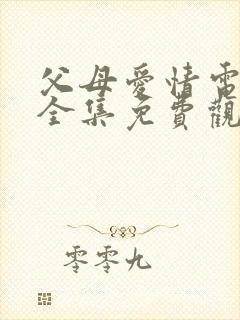 父母愛情電
全集免費觀
零零九